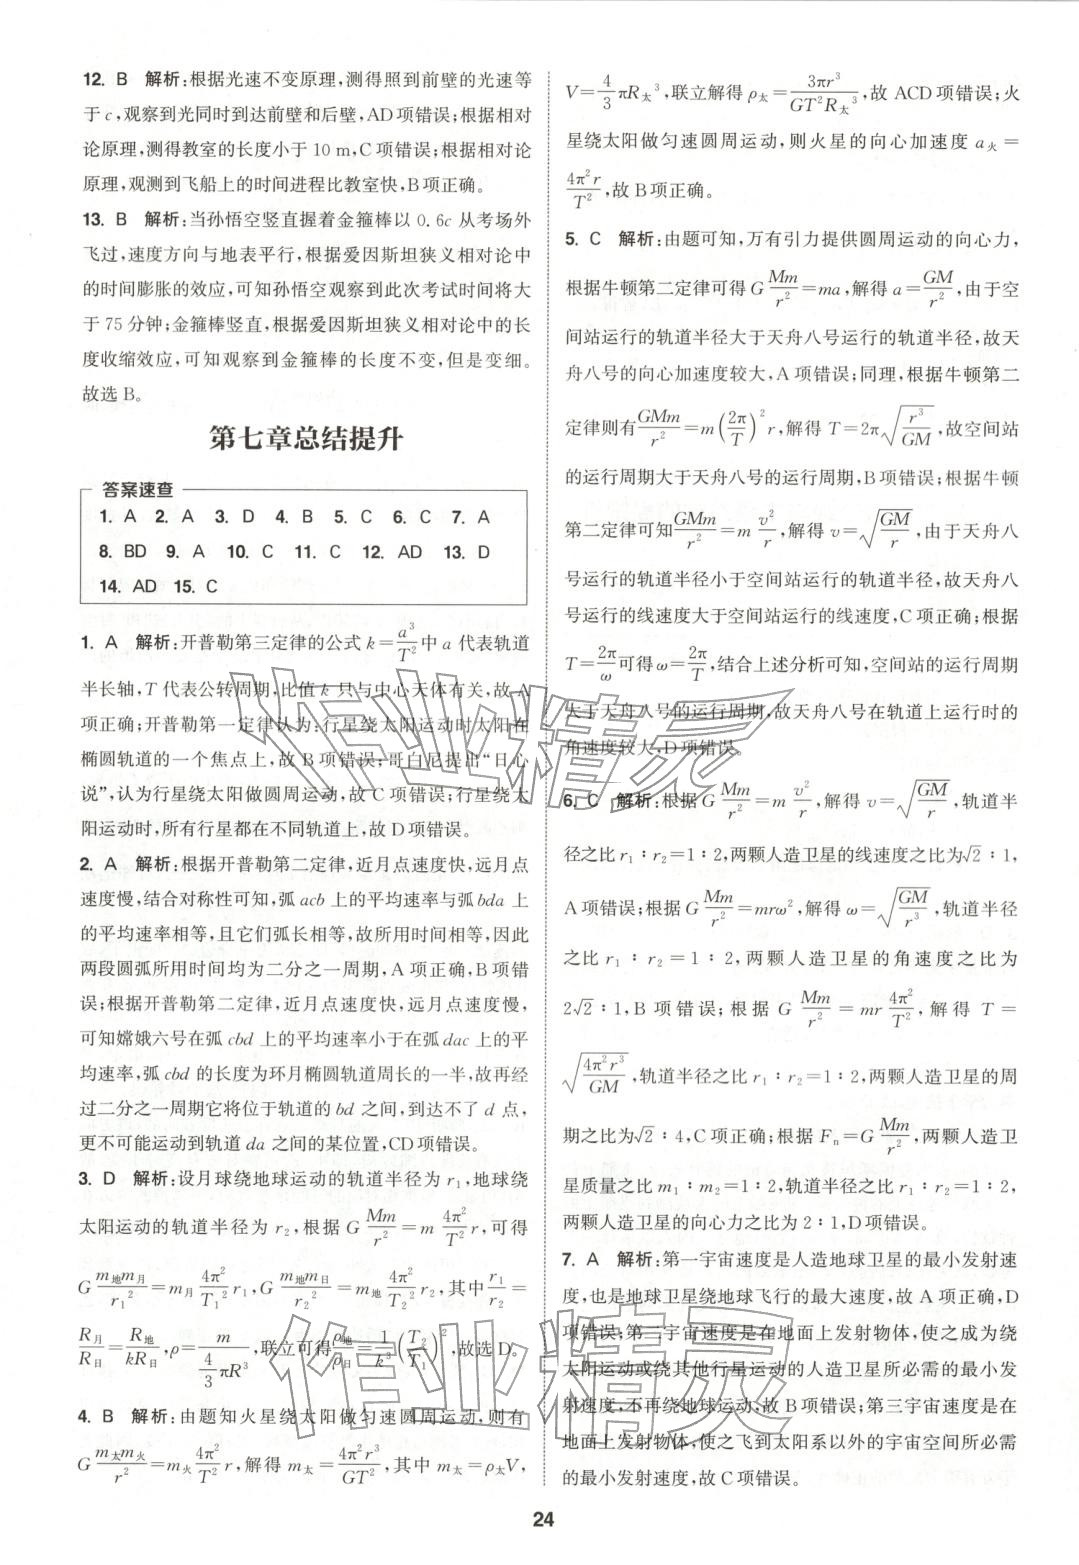 12. B 解析:根据光速不变原理,测得照到前壁的光速等
于 c,观察到光同时到达前壁和后壁,AD项错误;根据相对
论原理,测得教室的长度小于 10 m,C项错误;根据相对论
原理,观测到飞船上的时间进程比教室快,B项正确。
13. B 解析:当孙悟空竖直握着金箍棒以 0.6c 从考场外
飞过,速度方向与地表平行,根据爱因斯坦狭义相对论中
的时间膨胀的效应,可知孙悟空观察到此次考试时间将大
于 75 分钟;金箍棒竖直,根据爱因斯坦狭义相对论中的长
度收缩效应,可知观察到金箍棒的长度不变,但是变细。
故选 B。
第七章总结提升
答案速查
1. A 2. A 3. D 4. B 5. C 6. C 7. A
8. BD 9. A 10. C 11. C 12. AD 13. D
14. AD 15. C
1. A 解析:开普勒第三定律的公式 k=a³/T² 中 a 代表轨道
半长轴,T 代表公转周期,比值 k 只与中心天体有关,故 A
项正确;开普勒第一定律认为:行星绕太阳运动时太阳在
椭圆轨道的一个焦点上,故 B 项错误;哥白尼提出“日心
说”,认为行星绕太阳做圆周运动,故 C 项错误;行星绕太
阳运动时,所有行星都在不同轨道上,故 D 项错误。
2. A 解析:根据开普勒第二定律,近月点速度快,远月点
速度慢,结合对称性可知,弧 acb 上的平均速率与弧bda 上
的平均速率相等,且它们弧长相等,故所用时间相等,因此
两段圆弧所用时间均为二分之一周期,A 项正确,B 项错
误;根据开普勒第二定律,近月点速度快,远月点速度慢,
可知嫦娥六号在弧 cbd 上的平均速率小于在弧 dac 上的平
均速率,弧 cbd 的长度为环月椭圆轨道周长的一半,故再经
过二分之一周期它将位于轨道的 bd 之间,到达不了 d 点,
更不可能运动到轨道 da 之间的某位置,CD项错误。
3. D 解析:设月球绕地球运动的轨道半径为 r₁,地球绕
太阳运动的轨道半径为 r₂,根据 G Mm/r²=m 4π²/T² r,可得
G m地m月/r₁²=m月 4π²/T₁² r₁,G m地m日/r₂²=m地 4π²/T₂² r₂,其中 r₁/r₂=
R月/R日=R地/kR日,ρ=m/(4/3 πR³),联立可得 ρ地/ρ日=1/k³(T₂/T₁)²,故选 D。
4. B 解析:由题知火星绕太阳做匀速圆周运动,则有
G m太m火/r²=m火 4π²/T² r,解得 m太=4π²r³/GT²,其中 m太=ρ太V,
V=4/3 πR太³,联立解得 ρ太=3πr³/GT²R太³,故 ACD 项错误;火
星绕太阳做匀速圆周运动,则火星的向心加速度 a火=
4π²r/T²,故 B 项正确。
5. C 解析:由题可知,万有引力提供圆周运动的向心力,
根据牛顿第二定律可得 G Mm/r²=ma,解得 a=GM/r²,由于空
间站运行的轨道半径大于天舟八号运行的轨道半径,故天
舟八号的向心加速度较大,A 项错误;同理,根据牛顿第二
定律则有 GMm/r²=m(2π/T)²r,解得 T=2π√(r³/GM),故空间站
的运行周期大于天舟八号的运行周期,B项错误;根据牛顿
第二定律可知 GMm/r²=m v²/r,解得 v=√(GM/r),由于天舟八
号运行的轨道半径小于空间站运行的轨道半径,故天舟八
号运行的线速度大于空间站运行的线速度,C 项正确;根据
T=2π/ω 可得 ω=2π/T,结合上述分析可知,空间站的运行周期
大于天舟八号的运行周期,故天舟八号在轨道上运行时的
角速度较大,D 项错误。
6. C 解析:根据 G Mm/r²=m v²/r,解得 v=√(GM/r),轨道半
径之比 r₁∶r₂=1∶2,两颗人造卫星的线速度之比为√2∶1,
A 项错误;根据 G Mm/r²=mrω²,解得 ω=√(GM/r³),轨道半径
之比 r₁∶r₂=1∶2,两颗人造卫星的角速度之比为
2√2∶1,B 项错误;根据 G Mm/r²=mr 4π²/T²,解得 T=
√(4π²r³/GM),轨道半径之比 r₁∶r₂=1∶2,两颗人造卫星的周
期之比为√2∶4,C 项正确;根据 Fₙ=G Mm/r²,两颗人造卫
星质量之比 m₁∶m₂=1∶2,轨道半径之比 r₁∶r₂=1∶2,
两颗人造卫星的向心力之比为 2∶1,D 项错误。
7. A 解析:第一宇宙速度是人造地球卫星的最小发射速
度,也是地球卫星绕地球飞行的最大速度,故 A 项正确,D
项错误;第二宇宙速度是在地面上发射物体,使之成为绕
太阳运动或绕其他行星运动的人造卫星所必需的最小发
射速度,不再绕地球运动,故 B 项错误;第三宇宙速度是在
地面上发射物体,使之飞到太阳系以外的宇宙空间所必需
的最小发射速度,故 C 项错误。
24
作业精灵
作业精灵